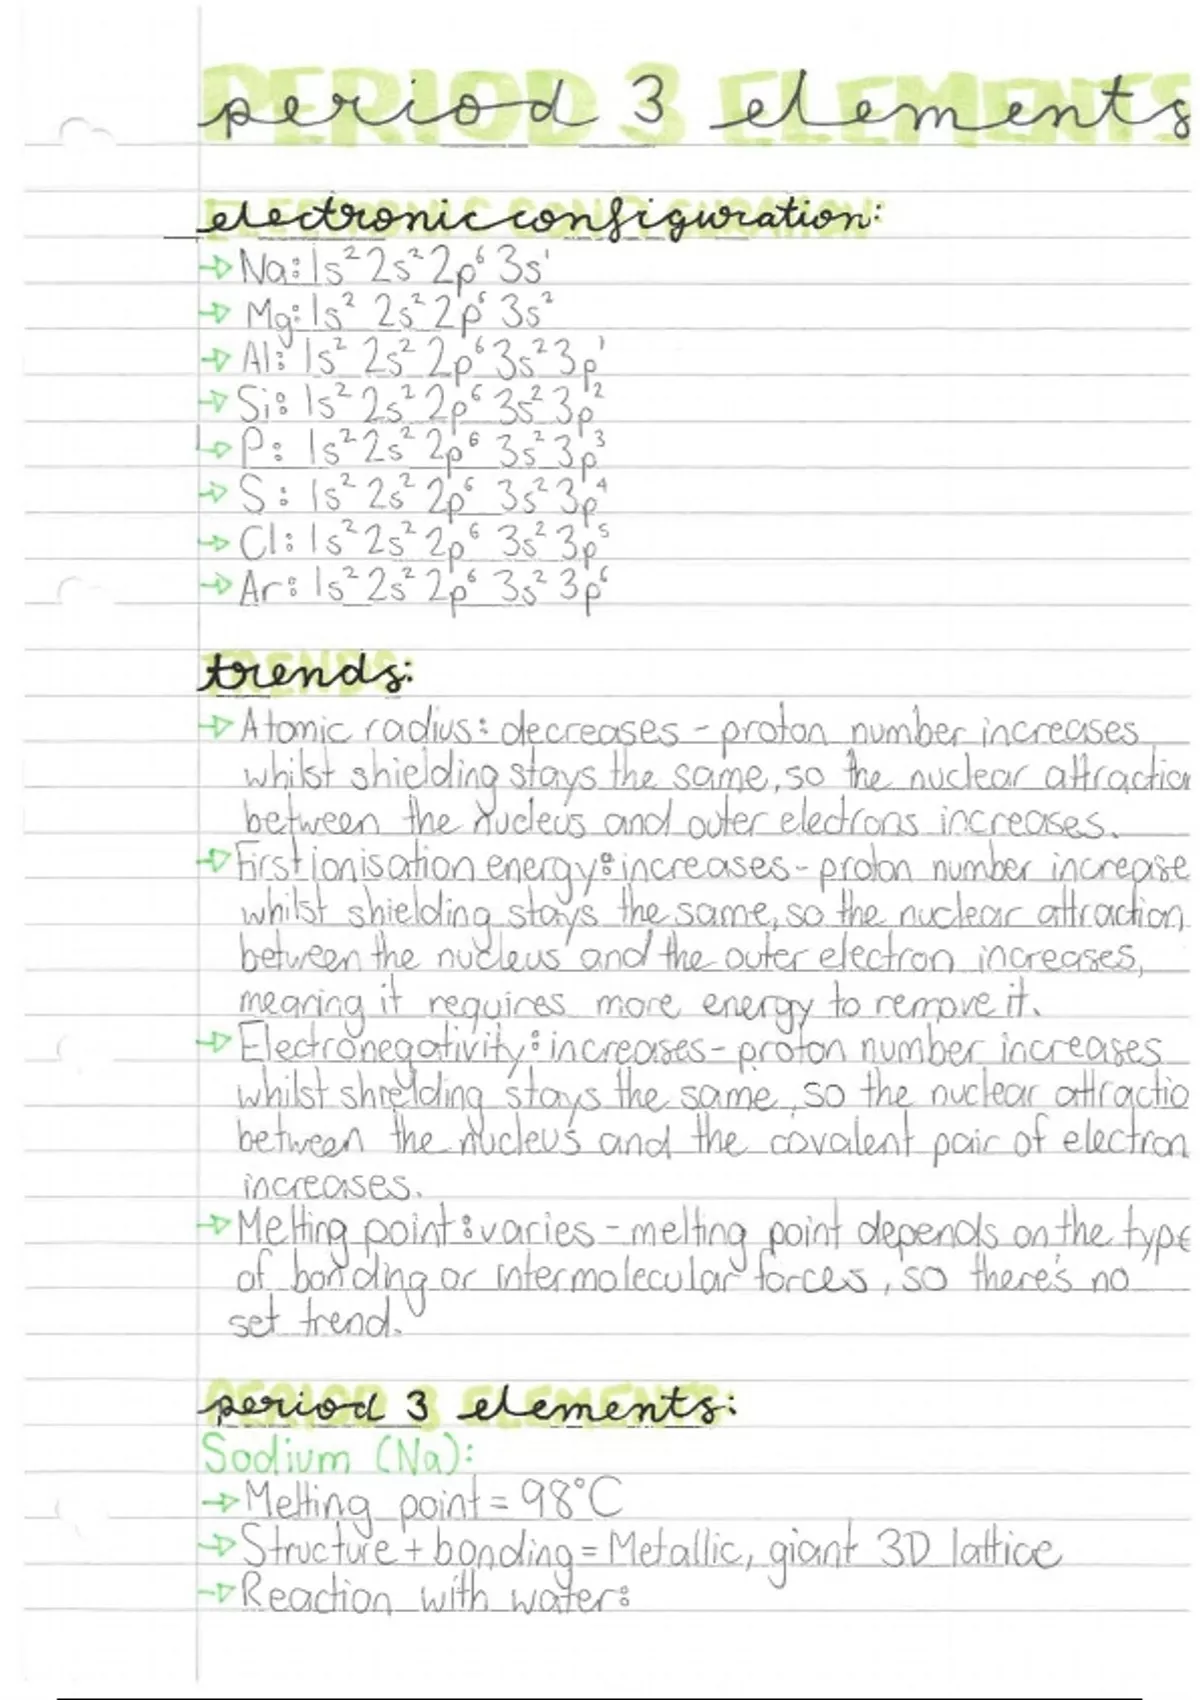 period 3 elements
electronic configuration:
→ Na: 1s² 2s² 2p⁶ 3s¹
→ Mg: 1s² 2s² 2p⁶ 3s²
→ Al: 1s² 2s² 2p⁶ 3s² 3p¹
→ Si: 1s² 2s² 2p⁶ 3s² 3p²
→ P: 1s² 2s² 2p⁶ 3s² 3p³
→ S: 1s² 2s² 2p⁶ 3s² 3p⁴
→ Cl: 1s² 2s² 2p⁶ 3s² 3p⁵
→ Ar: 1s² 2s² 2p⁶ 3s² 3p⁶
trends:
→ Atomic radius: decreases - proton number increases
whilst shielding stays the same, so the nuclear attraction
between the nucleus and outer electrons increases.
→ First ionisation energy: increases - proton number increase
whilst shielding stays the same, so the nuclear attraction
between the nucleus and the outer electron increases,
meaning it requires more energy to remove it.
→ Electronegativity: increases - proton number increases
whilst shielding stays the same, so the nuclear attractio
between the nucleus and the covalent pair of electron
increases.
→ Melting point: varies - melting point depends on the type
of bonding or intermolecular forces, so there's no
set trend.
period 3 elements:
Sodium (Na):
→ Melting point = 98°C
→ Structure + bonding = Metallic, giant 3D lattice
→ Reaction with water: